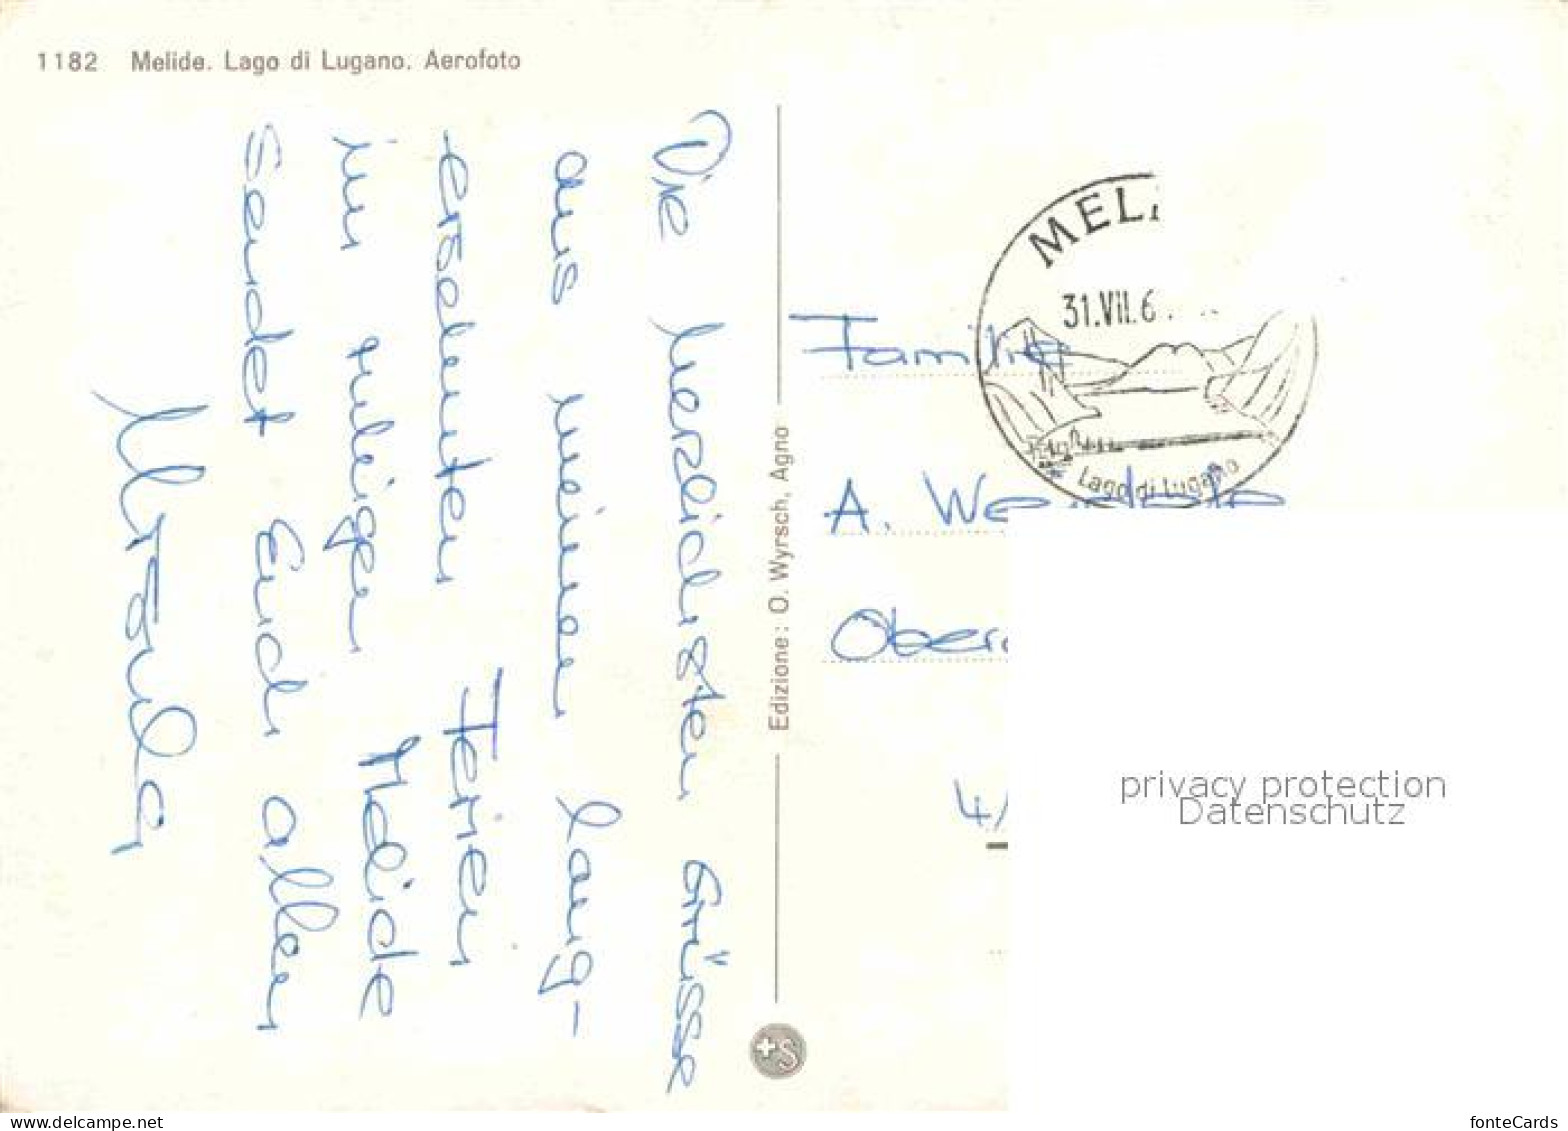 1182 Melide. Lago di Lugano. Aerofoto
Die herzlichsten Grüsse
aus meinen lang-
ersehnten Ferien
im ruhigen Melide
sendet Euch allen
Ursula
Edizione: O. Wyrsch, Agno
+S
MELI
31.VII.6
Lago di Lugano
Familie
A.
Ober
4/
privacy protection
Datenschutz
www.delcampe.net
fonteCards